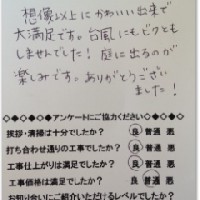 想像以上にかわいい出来で
大満足です。台風にも、ビクとも
しませんでした！庭に出るのが
楽しみです。ありがとうござい
ました！
アンケートにご協力ください
挨拶・清掃は十分でしたか？ 良 普通 悪
打ち合わせ通りの工事でしたか？ 良 普通 悪
工事仕上がりは満足でしたか？ 良 普通 悪
工事価格は満足でしたか？ 良 普通 悪
お知り合いにご紹介いただけるレベルでしたか？